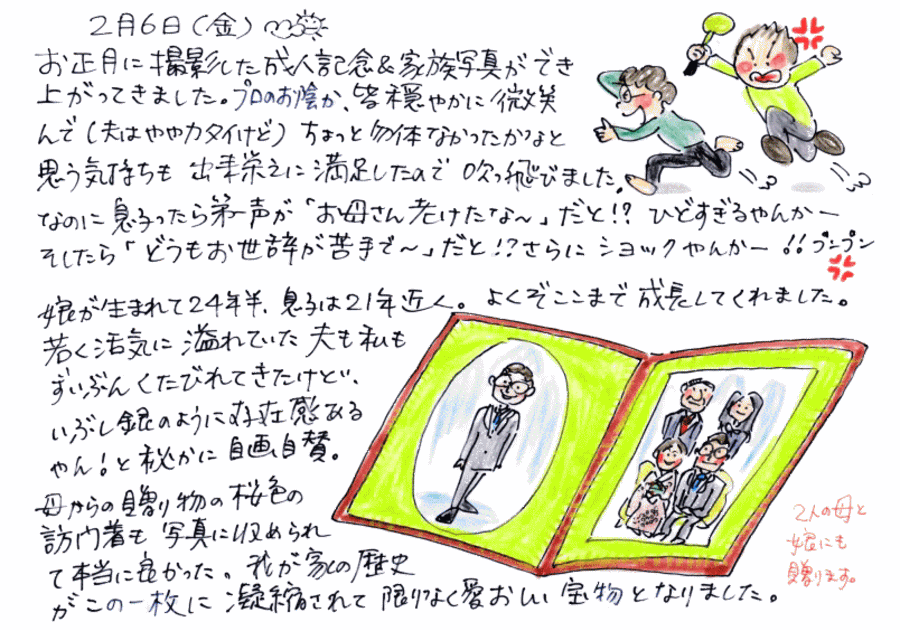 2月6日(金)
お正月に撮影した成人記念&家族写真ができ
上がってきました。プロのお陰か、皆穏やかに微笑
んで(夫はややカタイけど)ちょっと勿体なかったかなと
思う気持ちも出来栄えに満足したので吹っ飛びました。
なのに息子ったら第一声が「お母さん老けたな～」だと!? ひどすぎるやんかー
そしたら「どうもお世辞が苦手で～」だと!?さらにショックやんかー!!プンプン
娘が生まれて24年半、息子は21年近く。よくぞここまで成長してくれました。
若く活気に溢れていた夫も私も
ずいぶんくたびれてきたけど、
いぶし銀のように存在感ある
やん!と秘かに自画自賛。
母からの贈り物の桜色の
訪問着も写真に収められ
て本当に良かった。我が家の歴史
がこの一枚に凝縮されて限りなく愛おしい宝物となりました。
2人の母と
娘にも
贈ります。